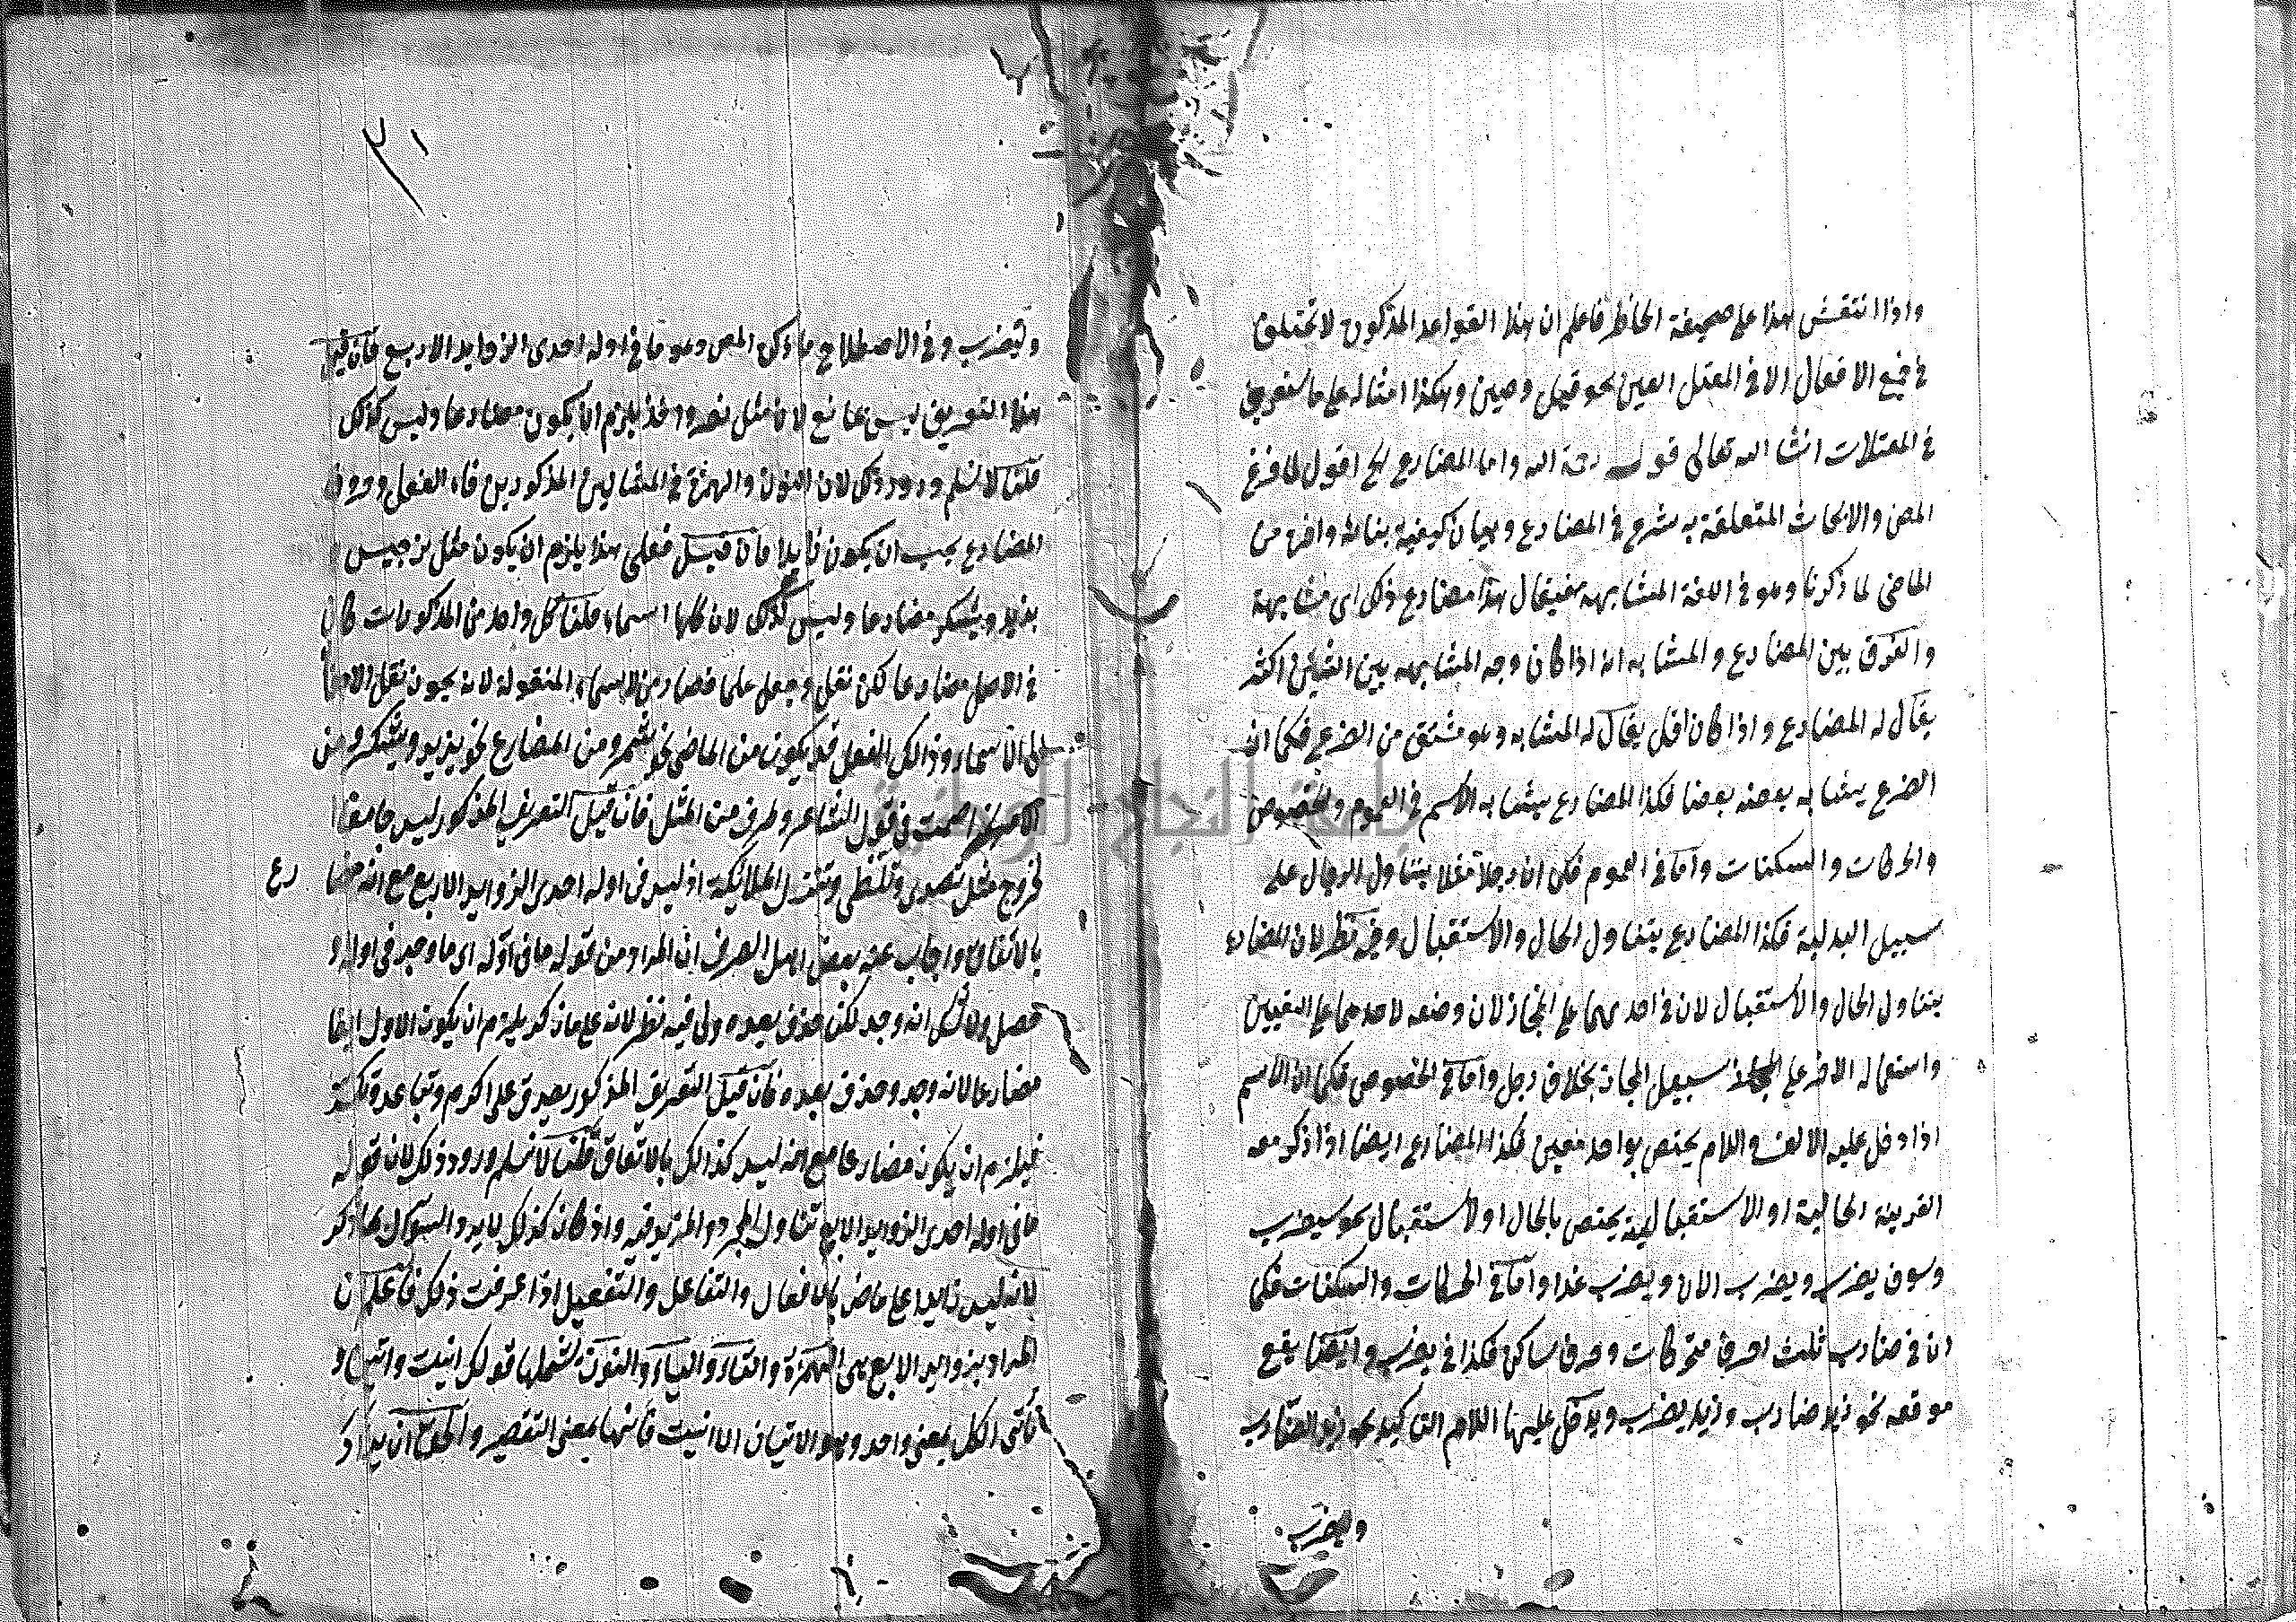 واذا انتقش هذا على صحيفة الخاطر فاعلم ان هذا القواعد المذكورة لا تختلف
في جميع الافعال الا في المعتل العين نحو قيل وصين وهكذا امثاله على ما ستعرف
في المعتلات انشا الله تعالى قوله رحمة الله واما المضارع الخ اقول لما فرغ
المص والابحاث المتعلقة به شرع في المضارع وبيان كيفية بنائه واخره من
الماضي لما ذكرنا وهو في اللغة المشابهه فيقال هذا مضارع ذلك اى مشابهة
والفرق بين المضارع والمشابه انه اذا كان وجه المشابهه بين الشيئين اكثر
يقال له المضارع واذا كان اقل يقال له المشابه وهو مشتق من الضرع فكما ان
الضرع يشابه بعضه بعضا فكذا المضارع يشابه الاسم في العموم والخصوص
والحركات والسكنات واما في العموم فكما ان رجلا مثلا يتناول الرجال على
سبيل البدلية فكذا المضارع يتناول الحال والاستقبال وفيه نظر لان المضارع
يتناول الحال والاستقبال لان في احدهما على المجاز لان وضعه لاحدهما على التعيين
واستعماله الاخر على سبيل المجاز بخلاف رجل واما في الخصوص فكما ان الاسم
اذا دخل عليه الالف واللام يختص بواحد معين فكذا المضارع ايضا اذا ذكر معه
القرينة الحالية او الاستقبالية يختص بالحال او الاستقبال نحو سيضرب
وسوف يضرب ويضرب الان ويضرب غدا واما في الحركات والسكنات فكما
ان في ضارب ثلث احرف متحركات وحرف ساكن فكذا في يضرب وايضا يقع
موقعه نحو زيد ضارب وزيد يضرب ويدخل عليها اللام التاكيد نحو زيد لضارب
وليضرب
٣١
وليضرب وفي الاصطلاح ما ذكره المص وهو ما في اوله احدى الزوايد الاربع فان قيل
هذا التعريف ليس بمانع لان مثل نصر واخذ يلزم ان يكون مضارعا وليس كذلك
قلنا لا نسلم ورود ذلك لان النون والهمزة في المثالين المذكورين فاء الفعل وحروف
المضارع يجب ان يكون زايدا فان قيل فعلى هذا يلزم ان يكون مثل نرجس
يزيد ويشكر مضارعا وليس كذلك لان كلها اسماء قلنا كل واحد من المذكورات كان
في الاصل مضارعا لكن نقل وجعل علما فصار من الاسماء المنقولة لانه يجوز نقل الافعال
الى الاسماء وذالك الفعل قد يكون من الماضي نحو شمر ومن المضارع نحو يزيد ويشكر ومن
الامر نحو اصمت في قول الشاعر وطرف من المثل فان قيل التعريف المذكور ليس جامعا
لخروج مثل تصدى وتلظى وتنزل الملائكة اذ ليس في اوله احدى الزوايد الاربع مع انه مضا رع
بالاتفاق واجاب عنه بعض اهل الصرف ان المراد من قوله ما في اوله اى ما وجد في اوله و
حصل ولا شك انه وجد لكن حذف بعده ولى فيه نظر لانه على ما ذكر يلزم ان يكون الاول ايضا
مضارعا لانه وجد وحذف بعده فان قيل التعريف المذكور يصدق على اكرم وتباعد وتكسر
فيلزم ان يكون مضارعا مع انه ليس كذالك بالاتفاق قلنا لا نسلم ورود ذلك لان قوله
ما في اوله احدى الزوايد الاربع تناول المجرد والمزيد فيه واذ كان كذلك لا يرد السؤال بما ذكر
لانه ليس زايدا على ماض بالافعال والتفاعل والتفعيل اذا عرفت ذلك فاعلم ان
المراد بزوايد الاربع هى الهمزة والتاء والياء والنون تشملها قولك انيت واتين و
ناتى الكل بمعنى واحد وهو الاتيان الا انيت فانها بمعنى التقصير والحق ان يراد